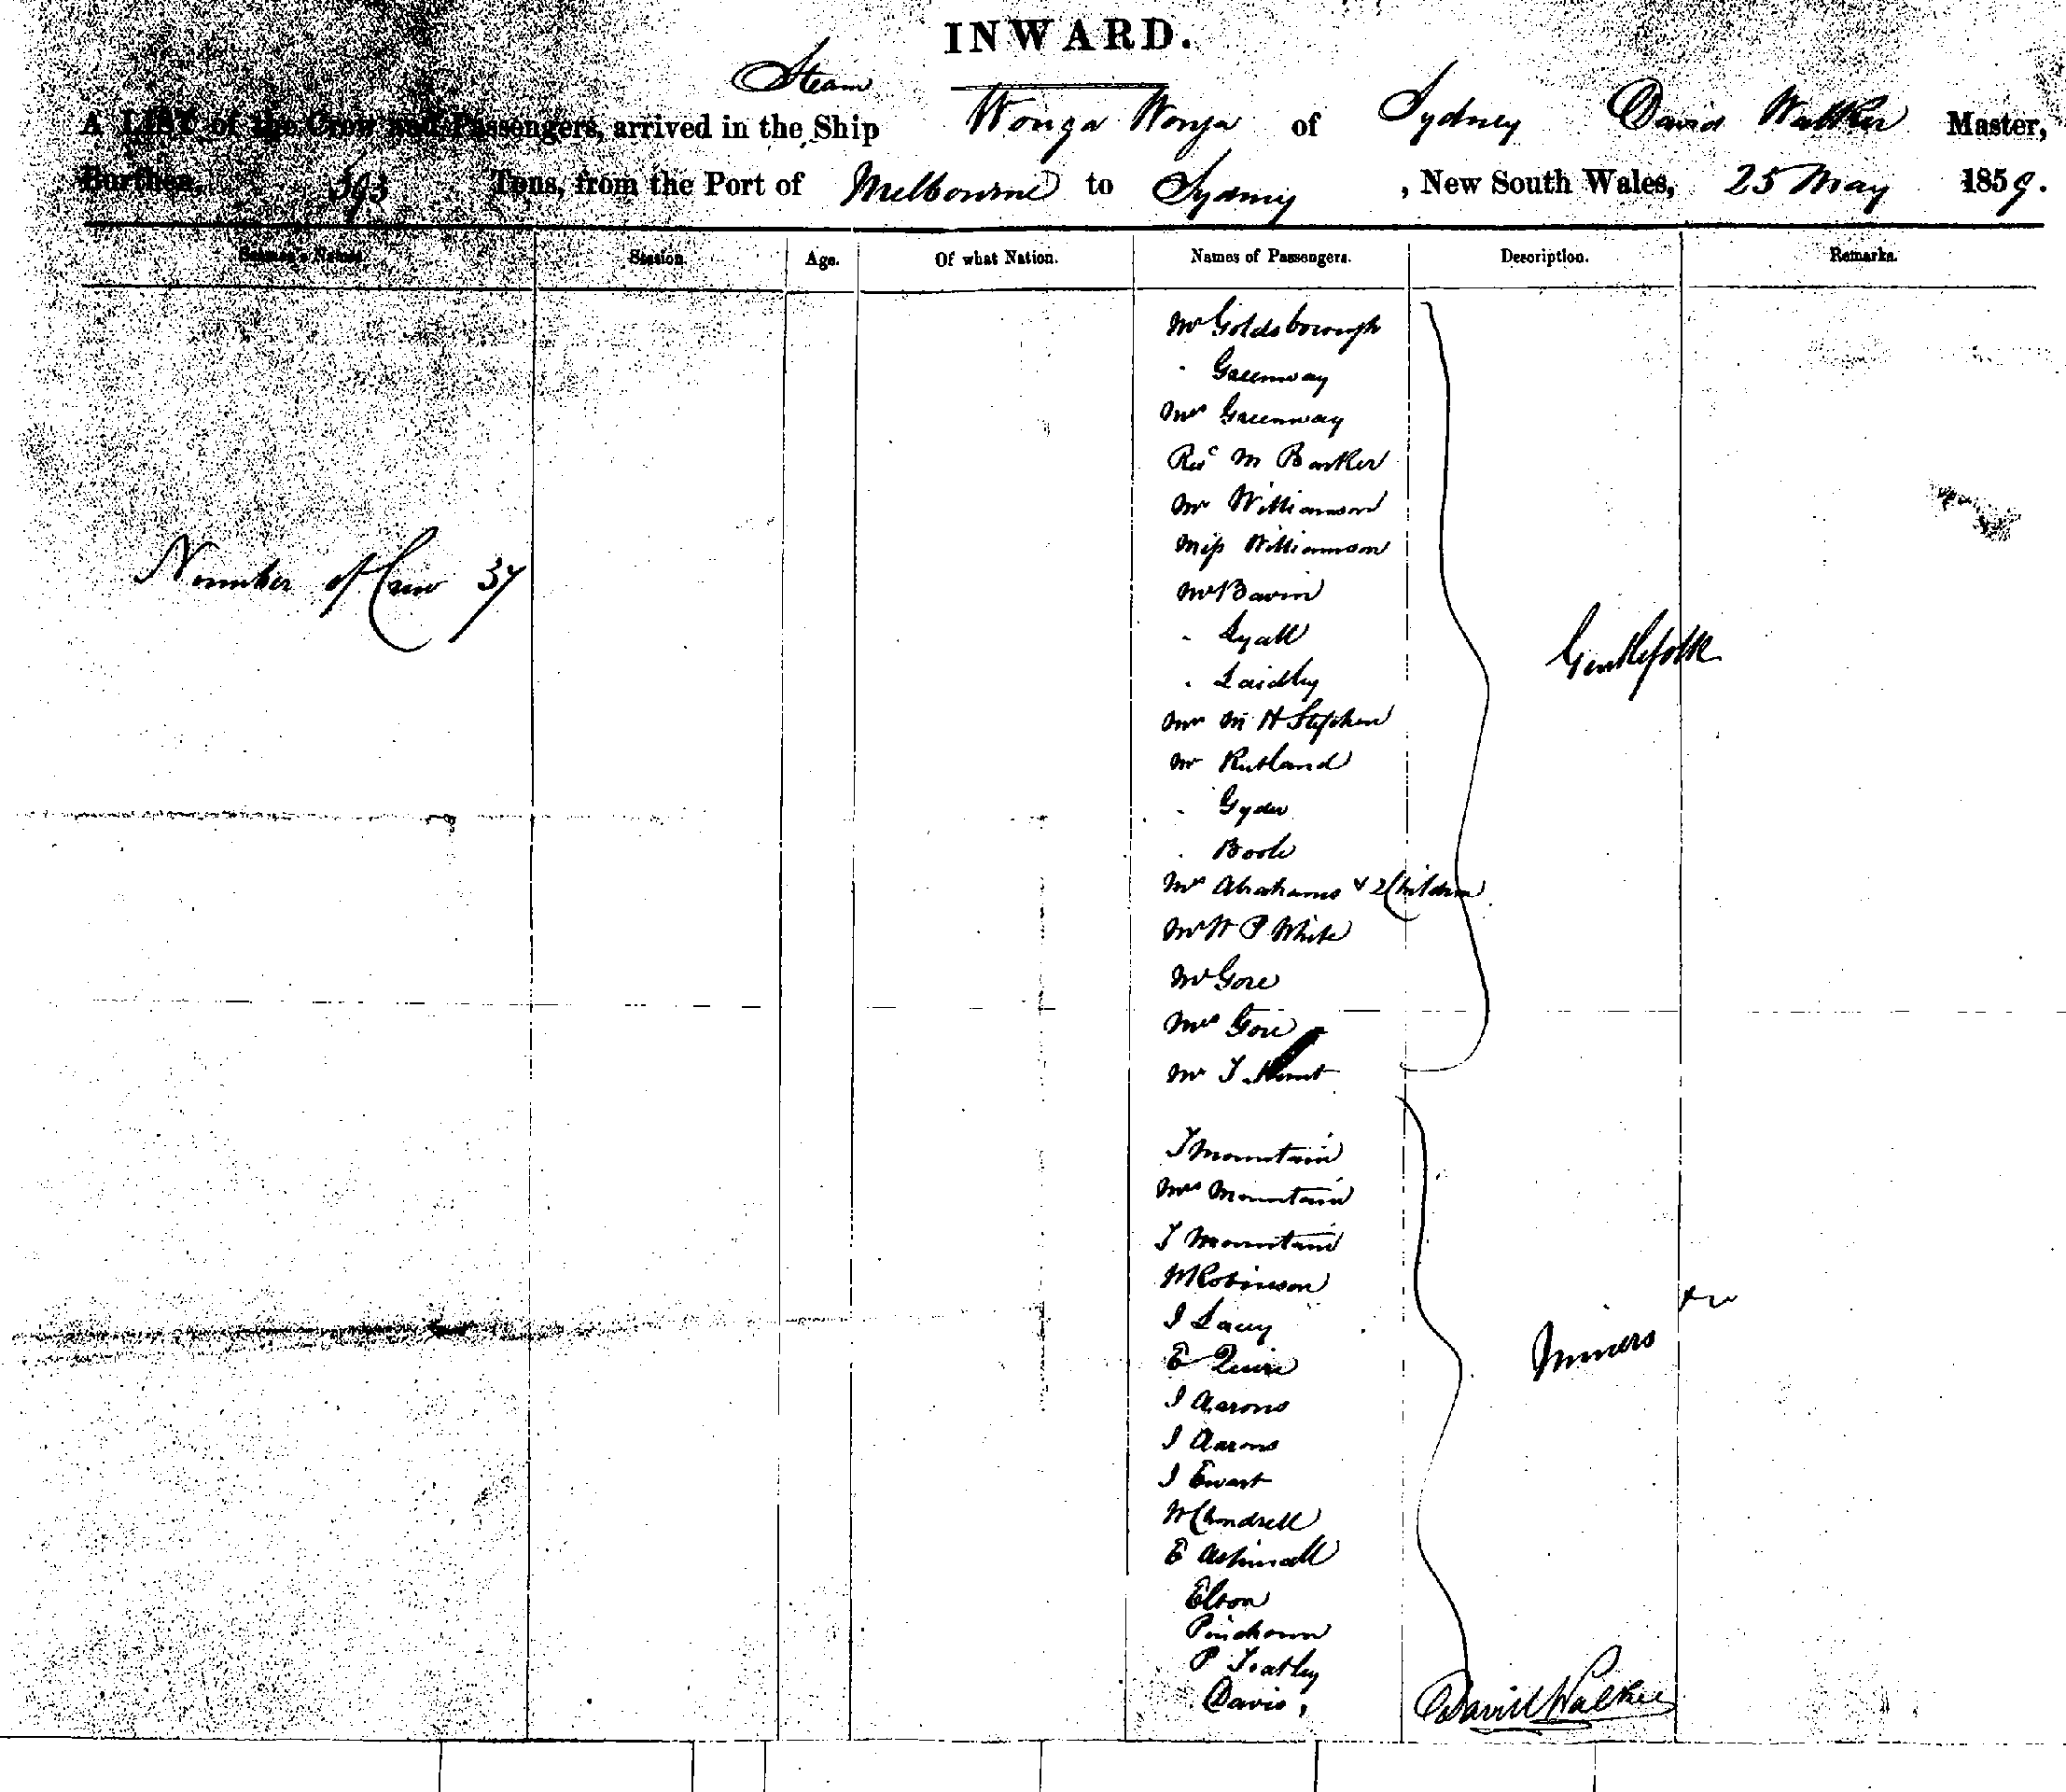 INWARD.
Steam
A LIST of the Crew and Passengers, arrived in the Ship Wonga Wonga of Sydney David Walker Master,
Burthen, 593 Tons, from the Port of Melbourne to Sydney, New South Wales, 25 May 1859.
Seamen's Names. Station. Age. Of what Nation. Names of Passengers. Description. Remarks.
Mr Goldsborough
" Greenway
Mrs Greenway
Revd M Barker
Mr Williamson
Miss Williamson
Number of Crew 37
Mr Bavin
" Lyall
Gentlefolk
" Laidley
Mr M H Stephen
Mr Rutland
" Gyder
" Boole
Mrs Abrahams & 2 Children
Mr W P White
Mr Gore
Mrs Gore
Mr T
T Mountain
Mrs Mountain
T Mountain
W Robinson
J Lacey
Miners
E
J Aarons
J Aarons
J Ewart
W
E Aspinall
Elson
P
Davis,
David Walker